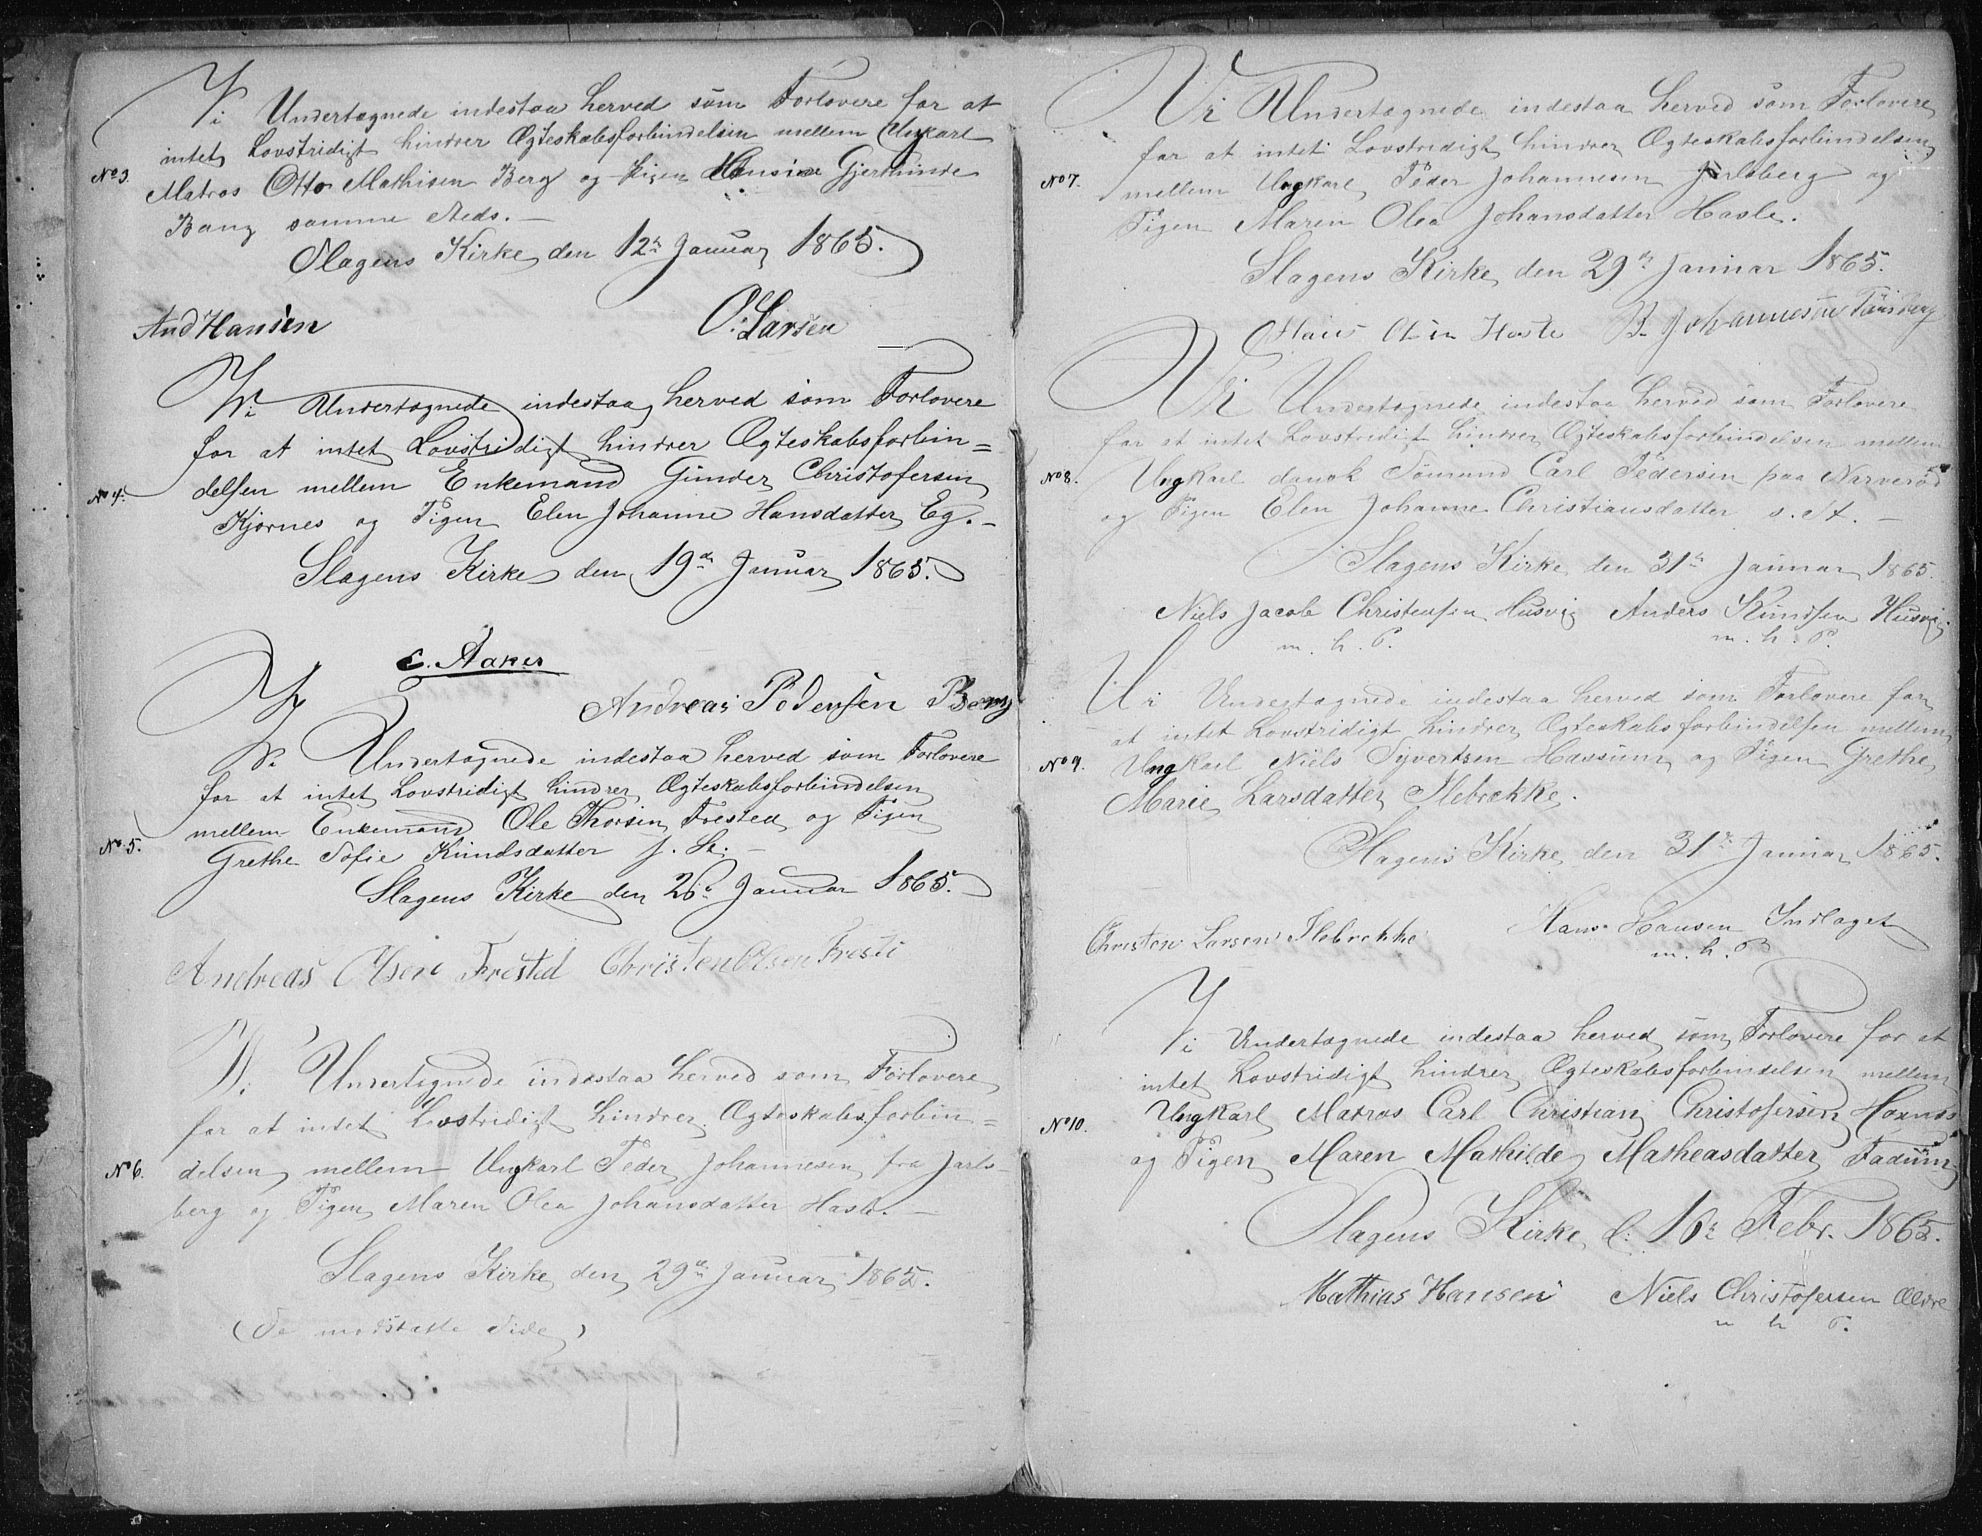 Vi Undertegnede indestaa herved som Forlovere for at
intet Lovstridigt hindrer Ægteskabsforbindelsen mellem Ungkarl
No 3. Matros Otto Mathisen Berg og Pigen Hansine Gjerthinde
Bang samme Steds. —
Slagens Kirke den 12te Januar 1865.
And Hansen O. Larsen
Vi Undertegnede indestaa herved som Forlovere
for at intet Lovstridigt hindrer Ægteskabsforbin=
No 4. delsen mellem Enkemand Gunder Christofersen
Kjørnes og Pigen Elen Johanne Hansdatter Eg. —
Slagens Kirke den 19de Januar 1865.
E. Aaker
Andreas Pedersen Berg
Vi Undertegnede indestaa herved som Forlovere
for at intet Lovstridigt hindrer Ægteskabsforbindelsen
mellem Enkemand Ole Thorsen Frested og Pigen
No 5. Grethe Sofie Knudsdatter s. St. —
Slagens Kirke den 26de Januar 1865.
Andreas Olsen Frested Christen Olsen Freste
Vi Undertegnede indestaa herved som Forlovere
for at intet Lovstridigt hindrer Ægteskabsforbin=
No 6. delsen mellem Ungkarl Peder Johannesen fra Jarls-
berg og Pigen Maren Olea Johansdatter Hasle. —
Slagens Kirke den 29de Januar 1865.
(Se modstaaende Side)
Vi Undertegnede indestaa herved som Forlovere
for at intet Lovstridigt hindrer Ægteskabsforbindelsen
No 7. mellem Ungkarl Peder Johannesen Jarlsberg og
Pigen Maren Olea Johansdatter Hasle.
Slagens Kirke den 29de Januar 1865.
Hans Olsen Hasle B. Johannesen Tønsberg
Vi Undertegnede indestaa herved som Forlovere
for at intet Lovstridigt hindrer Ægteskabsforbindelsen mellem
No 8. Ungkarl dansk Sømand Carl Pedersen paa Narverød
og Pigen Elen Johanne Christiansdatter s. St. —
Slagens Kirke den 31te Januar 1865.
Niels Jacob Christensen Husvig Anders Knudsen Husvig.
m. h. P. m. h. P.
Vi Undertegnede indestaa herved som Forlovere for
at intet Lovstridigt hindrer Ægteskabsforbindelsen mellem
No 9. Ungkarl Niels Syvertsen Hassum og Pigen Grethe
Marie Larsdatter Ilebrekke.
Slagens Kirke den 31te Januar 1865.
Christen Larsen Ilebrekke Hans Hansen Indlaget
m. h. P
Vi Undertegnede indestaa herved som Forlovere for at
intet Lovstridigt hindrer Ægteskabsforbindelsen mellem
No 10. Ungkarl Matros Carl Christian Christofersen
og Pigen Maren Mathilde Matheasdatter Fadum
Slagens Kirke d: 16de Febr. 1865.
Mathias Hansen Niels Christofersen
m h P.